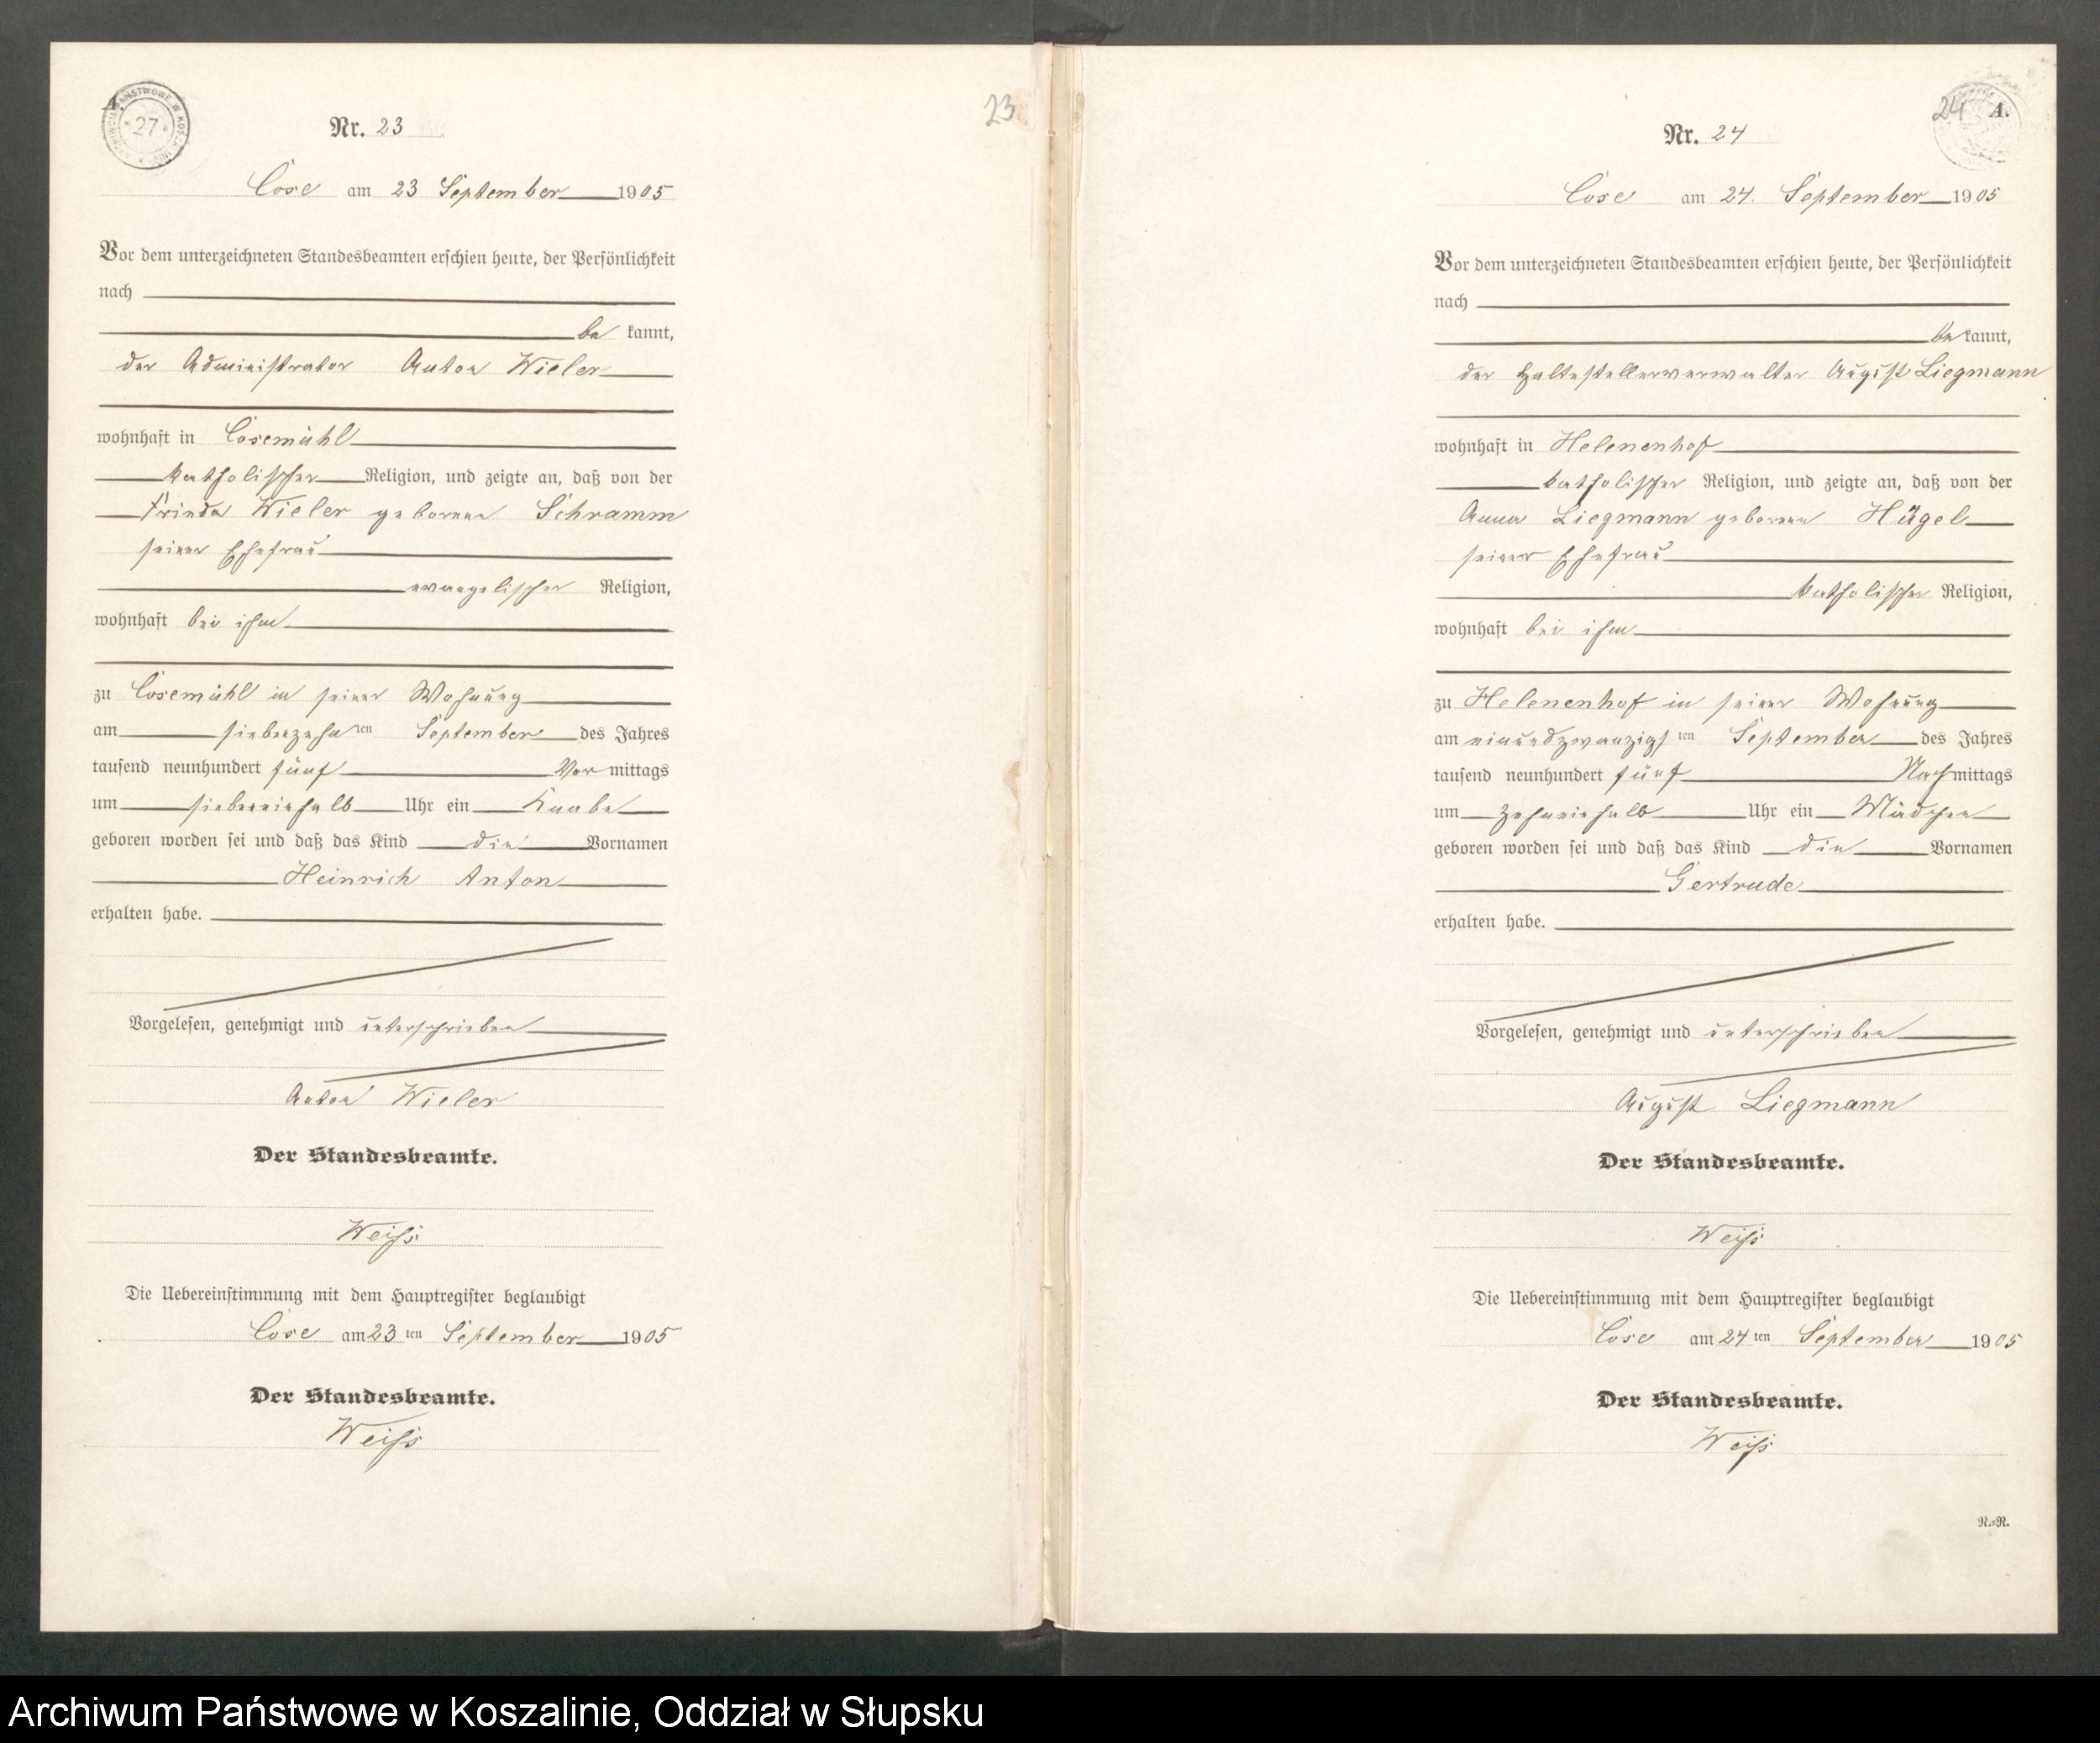 A.
ARCHIWUM PAŃSTWOWE W KOSZALINIE
27
Nr. 23
Cose am 23 September 1905
Vor dem unterzeichneten Standesbeamten erschien heute, der Persönlichkeit
nach
be kannt,
der Administrator Anton Wieler
wohnhaft in Cosemühl
katholischer Religion, und zeigte an, daß von der
Frieda Wieler geborene Schramm
seiner Ehefrau
evangelischer Religion,
wohnhaft bei ihm
zu Cosemühl in seiner Wohnung
am siebenzehnten September des Jahres
tausend neunhundert fünf Vormittags
um siebeneinhalb Uhr ein Knabe
geboren worden sei und daß das Kind die Vornamen
Heinrich Anton
erhalten habe.
Vorgelesen, genehmigt und unterschrieben
Anton Wieler
Der Standesbeamte.
Weiß
Die Uebereinstimmung mit dem Hauptregister beglaubigt
Cose am 23 ten September 1905
Der Standesbeamte.
Weiß
23
24 A.
Nr. 24
Cose am 24. September 1905
Vor dem unterzeichneten Standesbeamten erschien heute, der Persönlichkeit
nach
be kannt,
der Haltestellenverwalter August Liegmann
wohnhaft in Helenenhof
katholischer Religion, und zeigte an, daß von der
Anna Liegmann geborenen Hügel
seiner Ehefrau
katholischer Religion,
wohnhaft bei ihm
zu Helenenhof in seiner Wohnung
am einundzwanzigsten September des Jahres
tausend neunhundert fünf Nachmittags
um zehneinhalb Uhr ein Mädchen
geboren worden sei und daß das Kind die Vornamen
Gertrude
erhalten habe.
Vorgelesen, genehmigt und unterschrieben
August Liegmann
Der Standesbeamte.
Weiß
Die Uebereinstimmung mit dem Hauptregister beglaubigt
Cose am 24 ten September 1905
Der Standesbeamte.
Weiß
R.=R.
Archiwum Państwowe w Koszalinie, Oddział w Słupsku